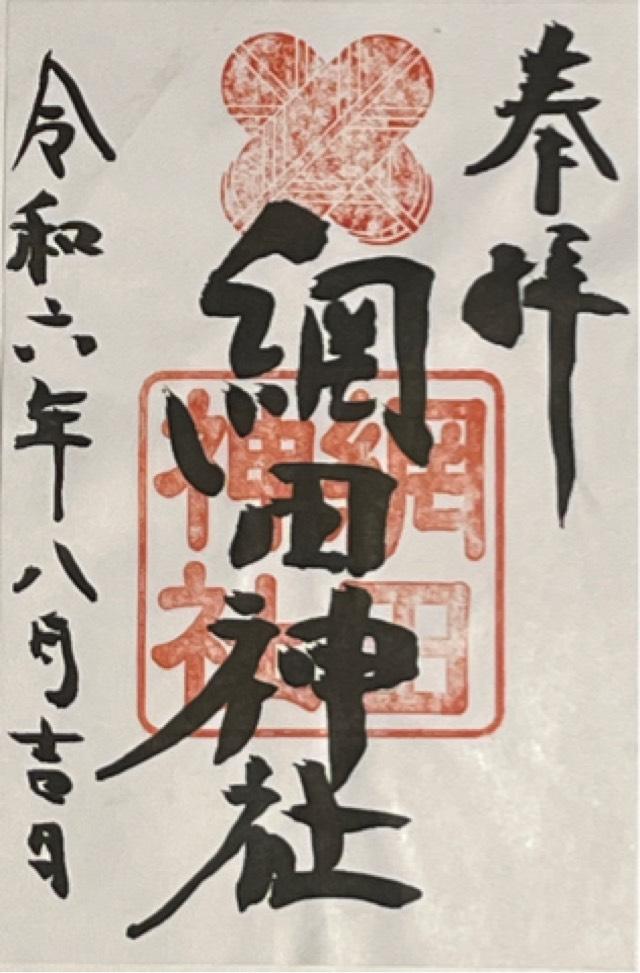 奉拝
網田神社
網田
神社
令和六年八月吉日